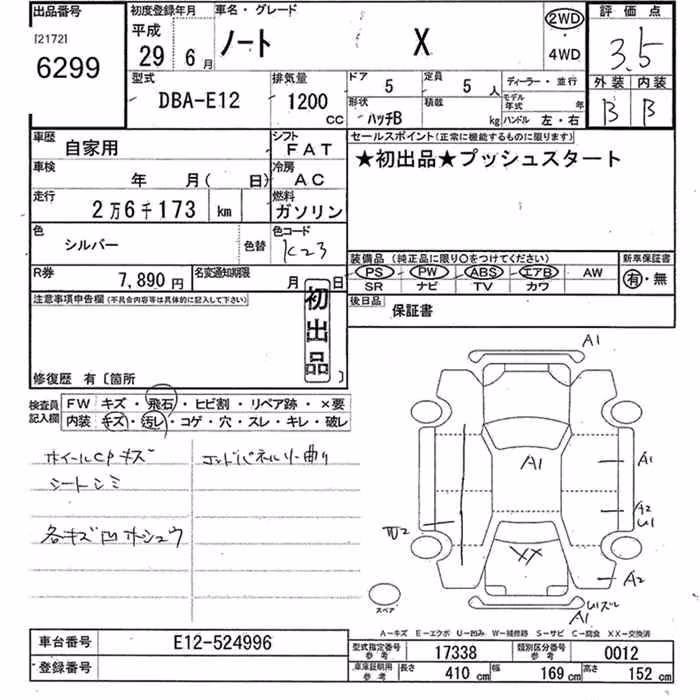 出品番号
[2172]
6299
初度登録年月
平成
29年 6月
車名・グレード
ノート X
2WD
・
4WD
評価点
3.5
外装 内装
B B
型式
DBA-E12
排気量
1200
CC
ドア 5
定員 5人
形状 ハッチB
積載 kg
ディーラー・並行
モデル年式 年
ハンドル 左・右
車歴
自家用
シフト
FAT
車検
年 月( 日)
冷房
AC
走行
2万6千173 km
燃料
ガソリン
色
シルバー
色替
色コード
K23
R券
7,890円
名変通知期限
月 日
セールスポイント(正常に機能するものに限ります)
★初出品★プッシュスタート
装備品(純正品に限り○をつけてください)
PS PW ABS エアB AW
SR ナビ TV カワ
新車保証書
有・無
後日品
保証書
注意事項申告欄(不具合内容等は具体的に記入して下さい)
初出品
修復歴 有〔箇所 〕
検査員記入欄
FW キズ・飛石・ヒビ割・リペア跡・×要
内装 キズ・汚レ・コゲ・穴・スレ・キレ・破レ
ホイールCPキズ
シートシミ
各キズ凹ホシュウ
コアドパネル曲り
A1
A1
A1
A2
U1
W2
XX
A2
A1
スペア
A-キズ E-エクボ U-凹み W-補修跡 S-サビ C-腐食 XX-交換済
車台番号
E12-524996
登録番号
型式指定番号 参考
17338
類別区分番号 参考
0012
車庫証明用 参考
長さ 410 cm
幅 169 cm
高さ 152 cm